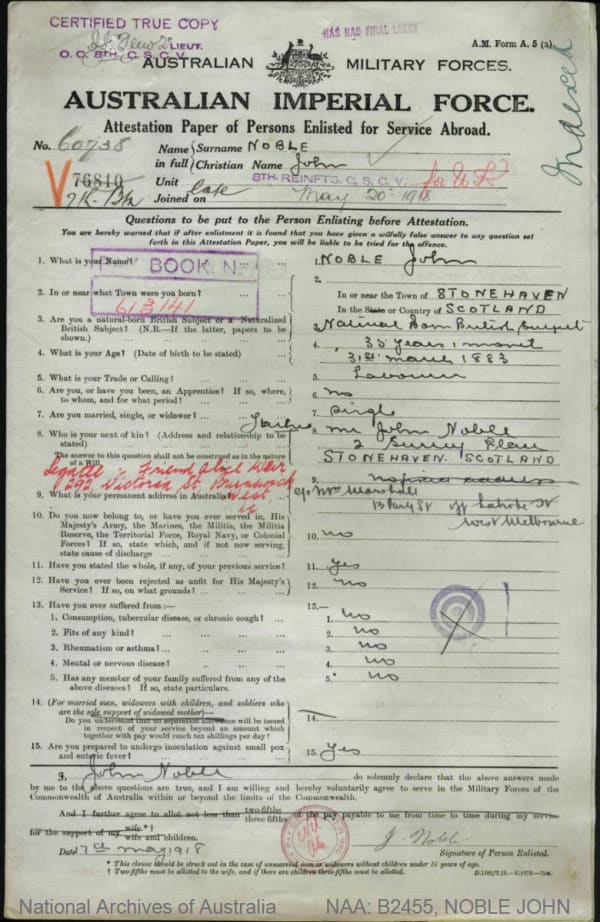 CERTIFIED TRUE COPY
LIEUT.
O. C. 8TH. C. S. C. V.
HAS HAD FINAL LEAVE
A.M. Form A. 5 (a)
Indexed
AUSTRALIAN MILITARY FORCES.
AUSTRALIAN IMPERIAL FORCE.
Attestation Paper of Persons Enlisted for Service Abroad.
No. 60738
Name in full
Surname NOBLE
Christian Name John
V 76810
Unit 8TH. REINFTS. C. S. C. V.
Joined on May 20th 1918
Questions to be put to the Person Enlisting before Attestation.
You are hereby warned that if after enlistment it is found that you have given a wilfully false answer to any question set
forth in this Attestation Paper, you will be liable to be tried for the offence.
BOOK. N.
613141
1. What is your Name? ... 1. NOBLE John
2. In or near what Town were you born? ... 2. In or near the Town of STONEHAVEN
In the State or Country of SCOTLAND
3. Are you a natural-born British Subject or a Naturalized British Subject? (N.B.—If the latter, papers to be shown.) 3. Natural Born British Subject
4. What is your Age? (Date of birth to be stated) 4. 35 years 1 month
31st March 1883
5. What is your Trade or Calling? ... 5. Labourer
6. Are you, or have you been, an Apprentice? If so, where, to whom, and for what period? 6. no
7. Are you married, single, or widower? ... 7. Single
8. Who is your next of kin? (Address and relationship to be stated) Father 8. Mr John Noble
2 Sunny Place
STONEHAVEN. SCOTLAND
The answer to this question shall not be construed as in the nature of a Will.
Legatee - Friend
292 Victoria St. Brunswick
West
9. What is your permanent address in Australia? 9. no fixed address
c/o Mrs Marshall
off Latrobe St
West Melbourne
10. Do you now belong to, or have you ever served in, His Majesty's Army, the Marines, the Militia, the Militia Reserve, the Territorial Force, Royal Navy, or Colonial Forces? If so, state which, and if not now serving, state cause of discharge ... 10. no
11. Have you stated the whole, if any, of your previous service? 11. yes
12. Have you ever been rejected as unfit for His Majesty's Service? If so, on what grounds? ... 12. no
13. Have you ever suffered from:— 13.—
1. Consumption, tubercular disease, or chronic cough? ... 1. no
2. Fits of any kind? ... 2. no
3. Rheumatism or asthma? ... 3. no
4. Mental or nervous disease? ... 4. no
5. Has any member of your family suffered from any of the above diseases? If so, state particulars. 5. no
14. (For married men, widowers with children, and soldiers who are the sole support of widowed mother)—
Do you understand that no separation allowance will be issued in respect of your service beyond an amount which together with pay would reach ten shillings per day? 14.
15. Are you prepared to undergo inoculation against small pox and enteric fever? ... 15. yes
I, John Noble do solemnly declare that the above answers made
by me to the above questions are true, and I am willing and hereby voluntarily agree to serve in the Military Forces of the
Commonwealth of Australia within or beyond the limits of the Commonwealth.
And I further agree to allot not less than two-fifths three-fifths of the pay payable to me from time to time during my service
for the support of my wife*† wife and children.
Date 7th May 1918
J. Noble
Signature of Person Enlisted.
* This clause should be struck out in the case of unmarried men or widowers without children under 16 years of age.
† Two-fifths must be allotted to the wife, and if there are children three-fifths must be allotted.
National Archives of Australia
NAA: B2455, NOBLE JOHN